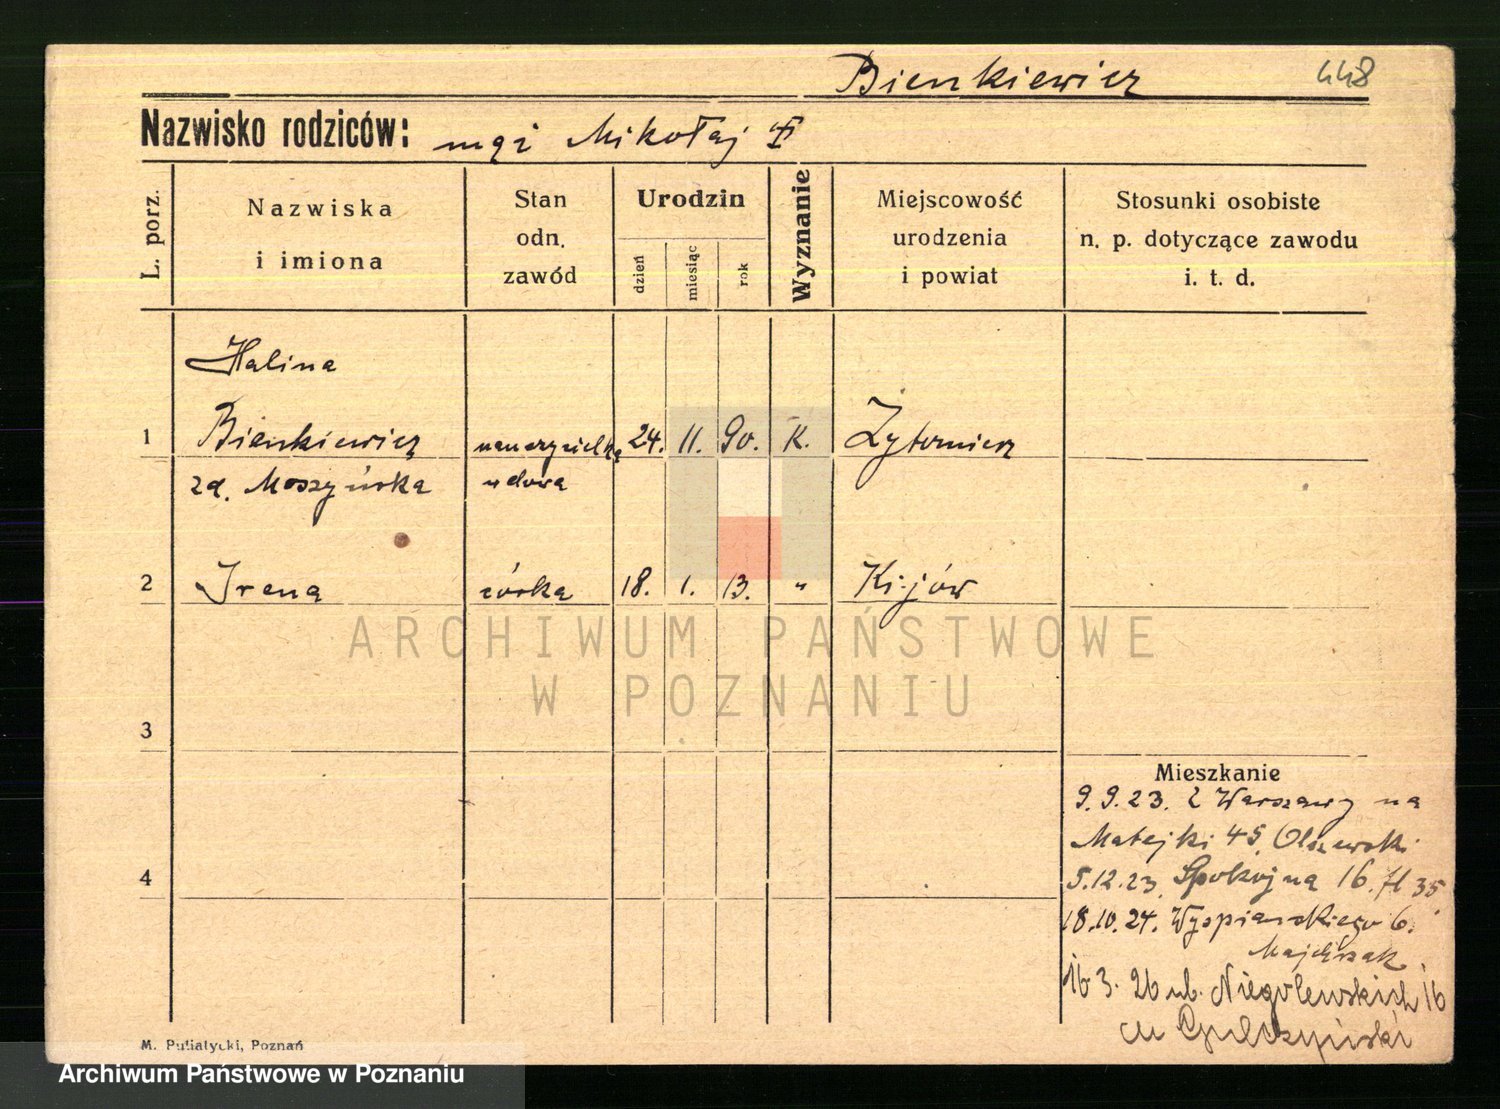 Bienkiewicz 448
Nazwisko rodziców: mąż Mikołaj
L. porz.
Nazwiska
i imiona
Stan
odn.
zawód
Urodzin
dzień
miesiąc
rok
Wyznanie
Miejscowość
urodzenia
i powiat
Stosunki osobiste
n. p. dotyczące zawodu
i. t. d.
Halina
1 Bienkiewicz nauczycielka 24. 11. 90. K. Żytomierz
zd. Moszyńska wdowa
2 Irena córka 18. 1. 13. " Kijów
3
4
Mieszkanie
9.9.23. z Warszawy na
Matejki 45, Olszewski
5.12.23. Spokojna 16. 35.
18.10.24. Wyspiańskiego 6.
Majchrzak
16 3. 26 ub. Niegolewskich 16
M. Putiatycki, Poznań
ARCHIWUM PAŃSTWOWE
W POZNANIU
Archiwum Państwowe w Poznaniu